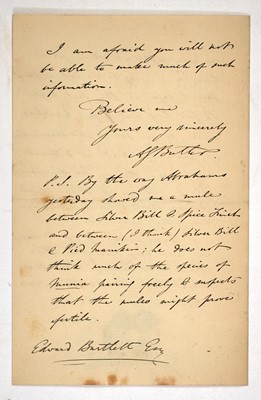 I am afraid you will not
be able to make much of such
information.
Believe me
Yours very sincerely
AGButler.
P.S. By the way Abrahams
yesterday showed me a mule
between Silver Bill & Spice Finch
and between (I think) Silver Bill
& Pied Manikin; he does not
think much of the species of
Munia pairing freely & suspects
that the mules might prove
fertile.
Edward Bartlett Esq